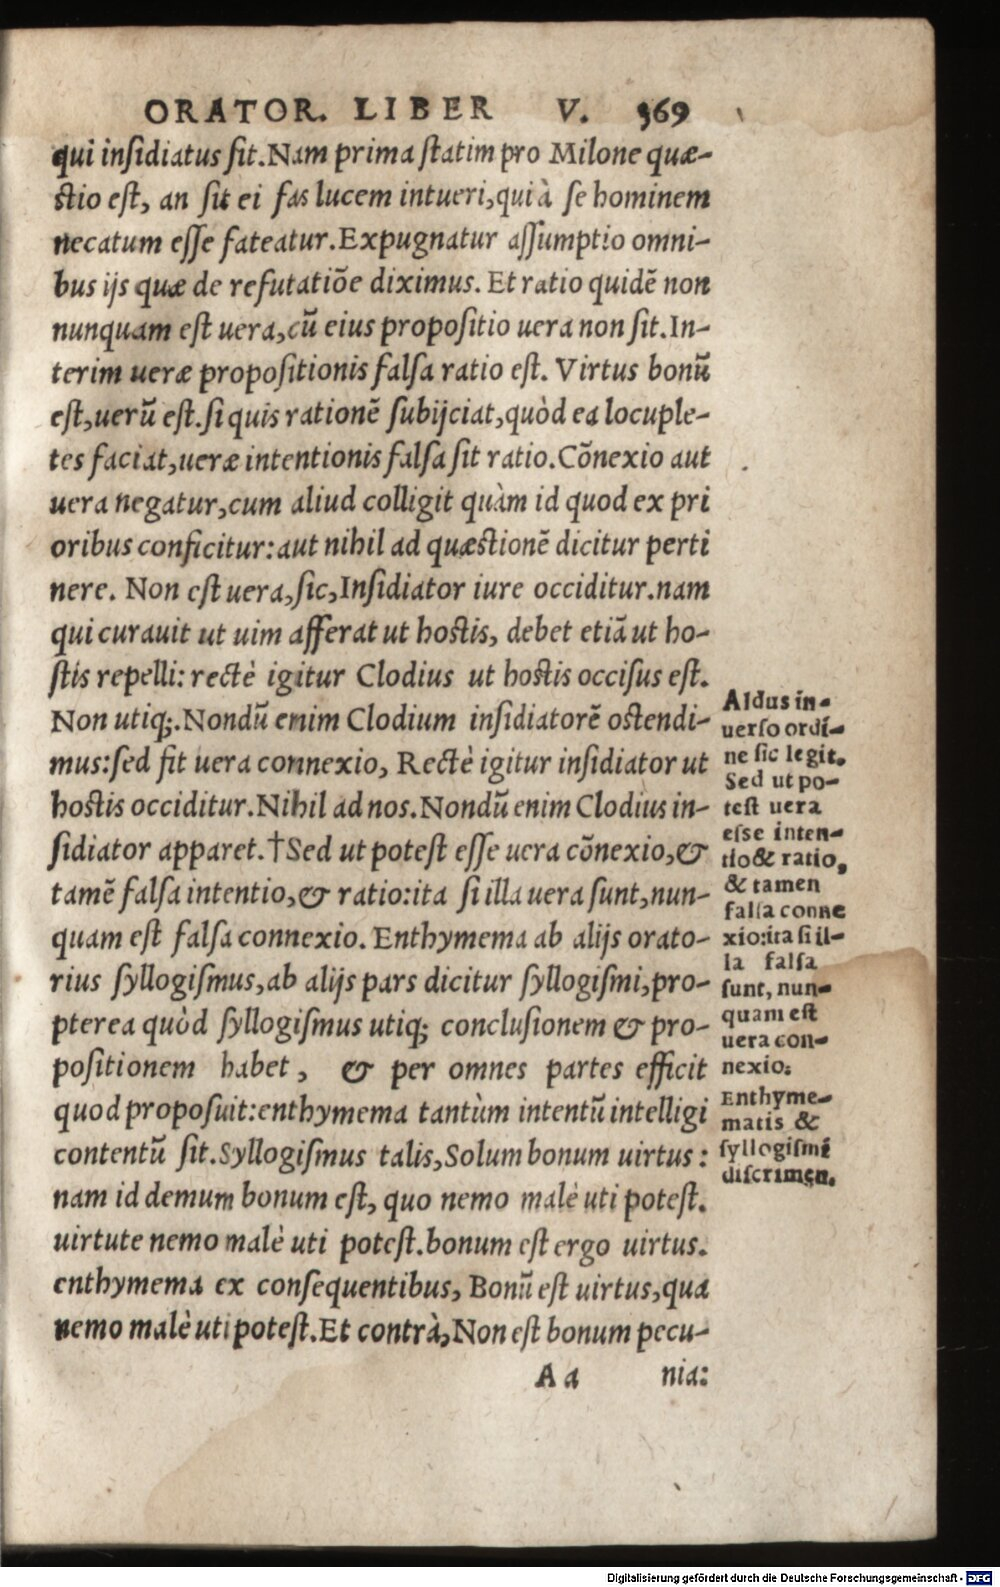 ORATOR. LIBER V. 369
qui insidiatus sit. Nam prima statim pro Milone quæ-
stio est, an sit ei fas lucem intueri, qui à se hominem
necatum esse fateatur. Expugnatur assumptio omni-
bus ijs quæ de refutatiõe diximus. Et ratio quidẽ non
nunquam est uera, cũ eius propositio uera non sit. In-
terim ueræ propositionis falsa ratio est. Virtus bonũ
est, uerũ est. si quis rationẽ subijciat, quòd ea locuple-
tes faciat, ueræ intentionis falsa sit ratio. Cõnexio aut
uera negatur, cum aliud colligit quàm id quod ex pri
oribus conficitur: aut nihil ad quæstionẽ dicitur perti
nere. Non est uera, sic, Insidiator iure occiditur. nam
qui curauit ut uim afferat ut hostis, debet etiã ut ho-
stis repelli: rectè igitur Clodius ut hostis occisus est.
Non utiq;. Nondũ enim Clodium insidiatorẽ ostendi-
mus: sed fit uera connexio, Rectè igitur insidiator ut
hostis occiditur. Nihil ad nos. Nondũ enim Clodius in-
sidiator apparet. †Sed ut potest esse uera cõnexio, &
tamẽ falsa intentio, & ratio: ita si illa uera sunt, nun-
quam est falsa connexio. Enthymema ab alijs orato-
rius syllogismus, ab alijs pars dicitur syllogismi, pro-
pterea quòd syllogismus utiq; conclusionem & pro-
positionem habet, & per omnes partes efficit
quod proposuit: enthymema tantùm intentũ intelligi
contentũ sit. Syllogismus talis, Solum bonum uirtus:
nam id demum bonum est, quo nemo malè uti potest.
uirtute nemo malè uti potest. bonum est ergo uirtus.
enthymema ex consequentibus, Bonũ est uirtus, qua
nemo malè uti potest. Et contrà, Non est bonum pecu-
A a nia:
Aldus in-
uerso ordi-
ne sic legit.
Sed ut po-
test uera
esse inten-
tio & ratio,
& tamen
falsa conne
xio: ita si il-
la falsa
sunt, nun-
quam est
uera con-
nexio.
Enthyme-
matis &
syllogismi
discrimen.
Digitalisierung gefördert durch die Deutsche Forschungsgemeinschaft - DFG